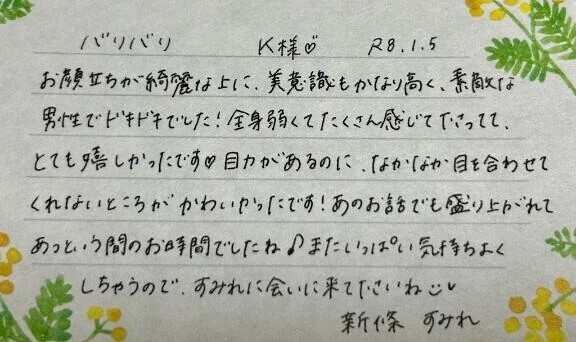 バリバリ K様♡ R8.1.5
お顔立ちが綺麗な上に、美意識もかなり高く、素敵な
男性でドキドキでした！全身弱くてたくさん感じて下さってて、
とても嬉しかったです♡目力があるのに、なかなか目を合わせて
くれないところがかわいかったです！あのお話でも盛り上がれて
あっという間のお時間でしたね♪またいっぱい気持ちよく
しちゃうので、すみれに会いに来て下さいね
新條 すみれ